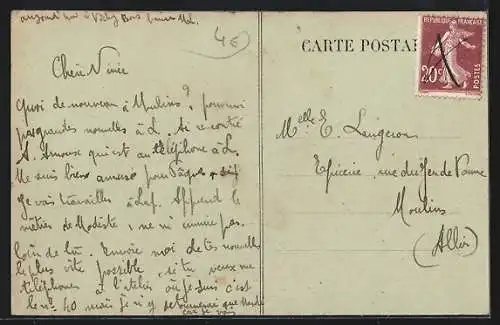 aujourd'hui à Vichy Bons
4€
Chère Ninie
Quoi de nouveau à Moulins ?
pas grandes nouvelles à L. Ai rencontré
A. qui est au téléphone à L.
Me suis bien amusé pour Pâques
je vais travailler à Lap. Apprend le
métier de Modiste, ne m'ennuie pas
loin de lui. Envoie moi de tes nouvelles
le plus vite possible, si tu veux me
téléphoner à l'atelier où je suis c'est
le n° 40 mais je n'y retournerai que
car je vais
CARTE POSTALE
RÉPUBLIQUE FRANÇAISE
20c
POSTES
Melle E. Laugeron
Epicerie, rue du Jeu de Paume
Moulins
(Allier)